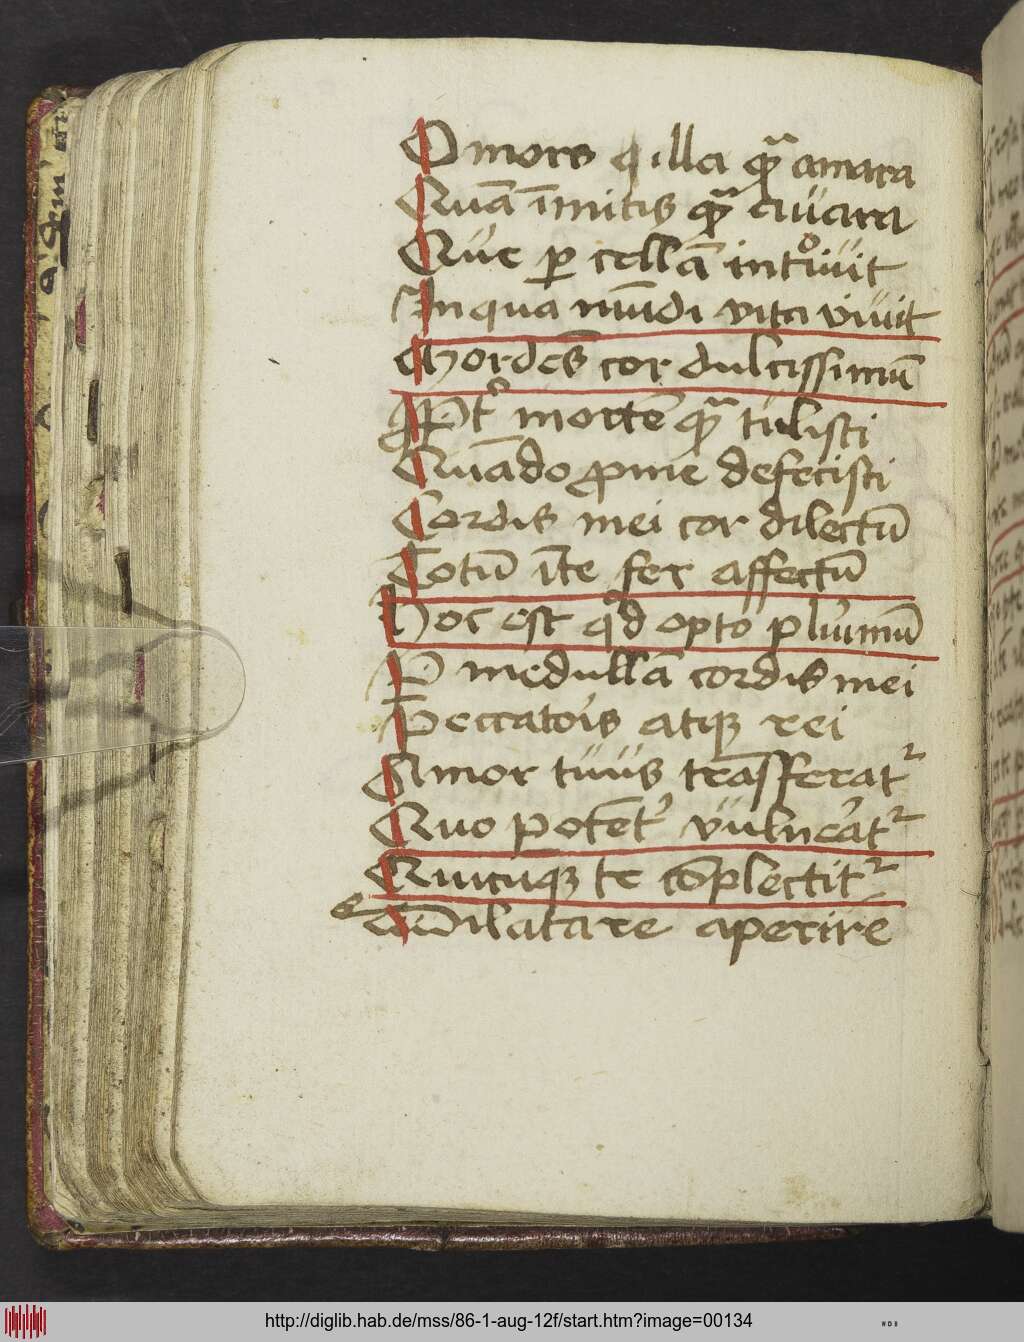 O mors q illa qᷓ amara
Quā īmitis qᷓ auara
Que ꝑ cellā intͦiuit
In qua mūdi vita viuit
Mordēs cor dulcissimū
Ppt' mortē qᷓ tulisti
Quādo ꝓ me defecisti
Cordis mei cor dilectū
Totū ī te fer affectū
Hoc est qd opto plurimū
P medullā cordis mei
Peccatoris atqꝫ rei
Amor tuus trāsferatᷣ
Quo potēt' vulneratᷣ
Quicūqꝫ te cōplectitᷣ
Dilatare aperire
http://diglib.hab.de/mss/86-1-aug-12f/start.htm?image=00134